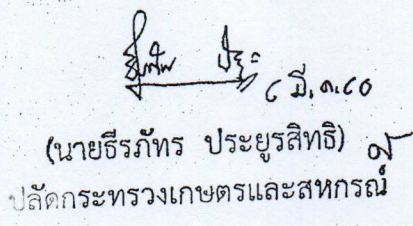 ๘ มี.ค.๖๐
(นายธีรภัทร ประยูรสิทธิ)
ปลัดกระทรวงเกษตรและสหกรณ์